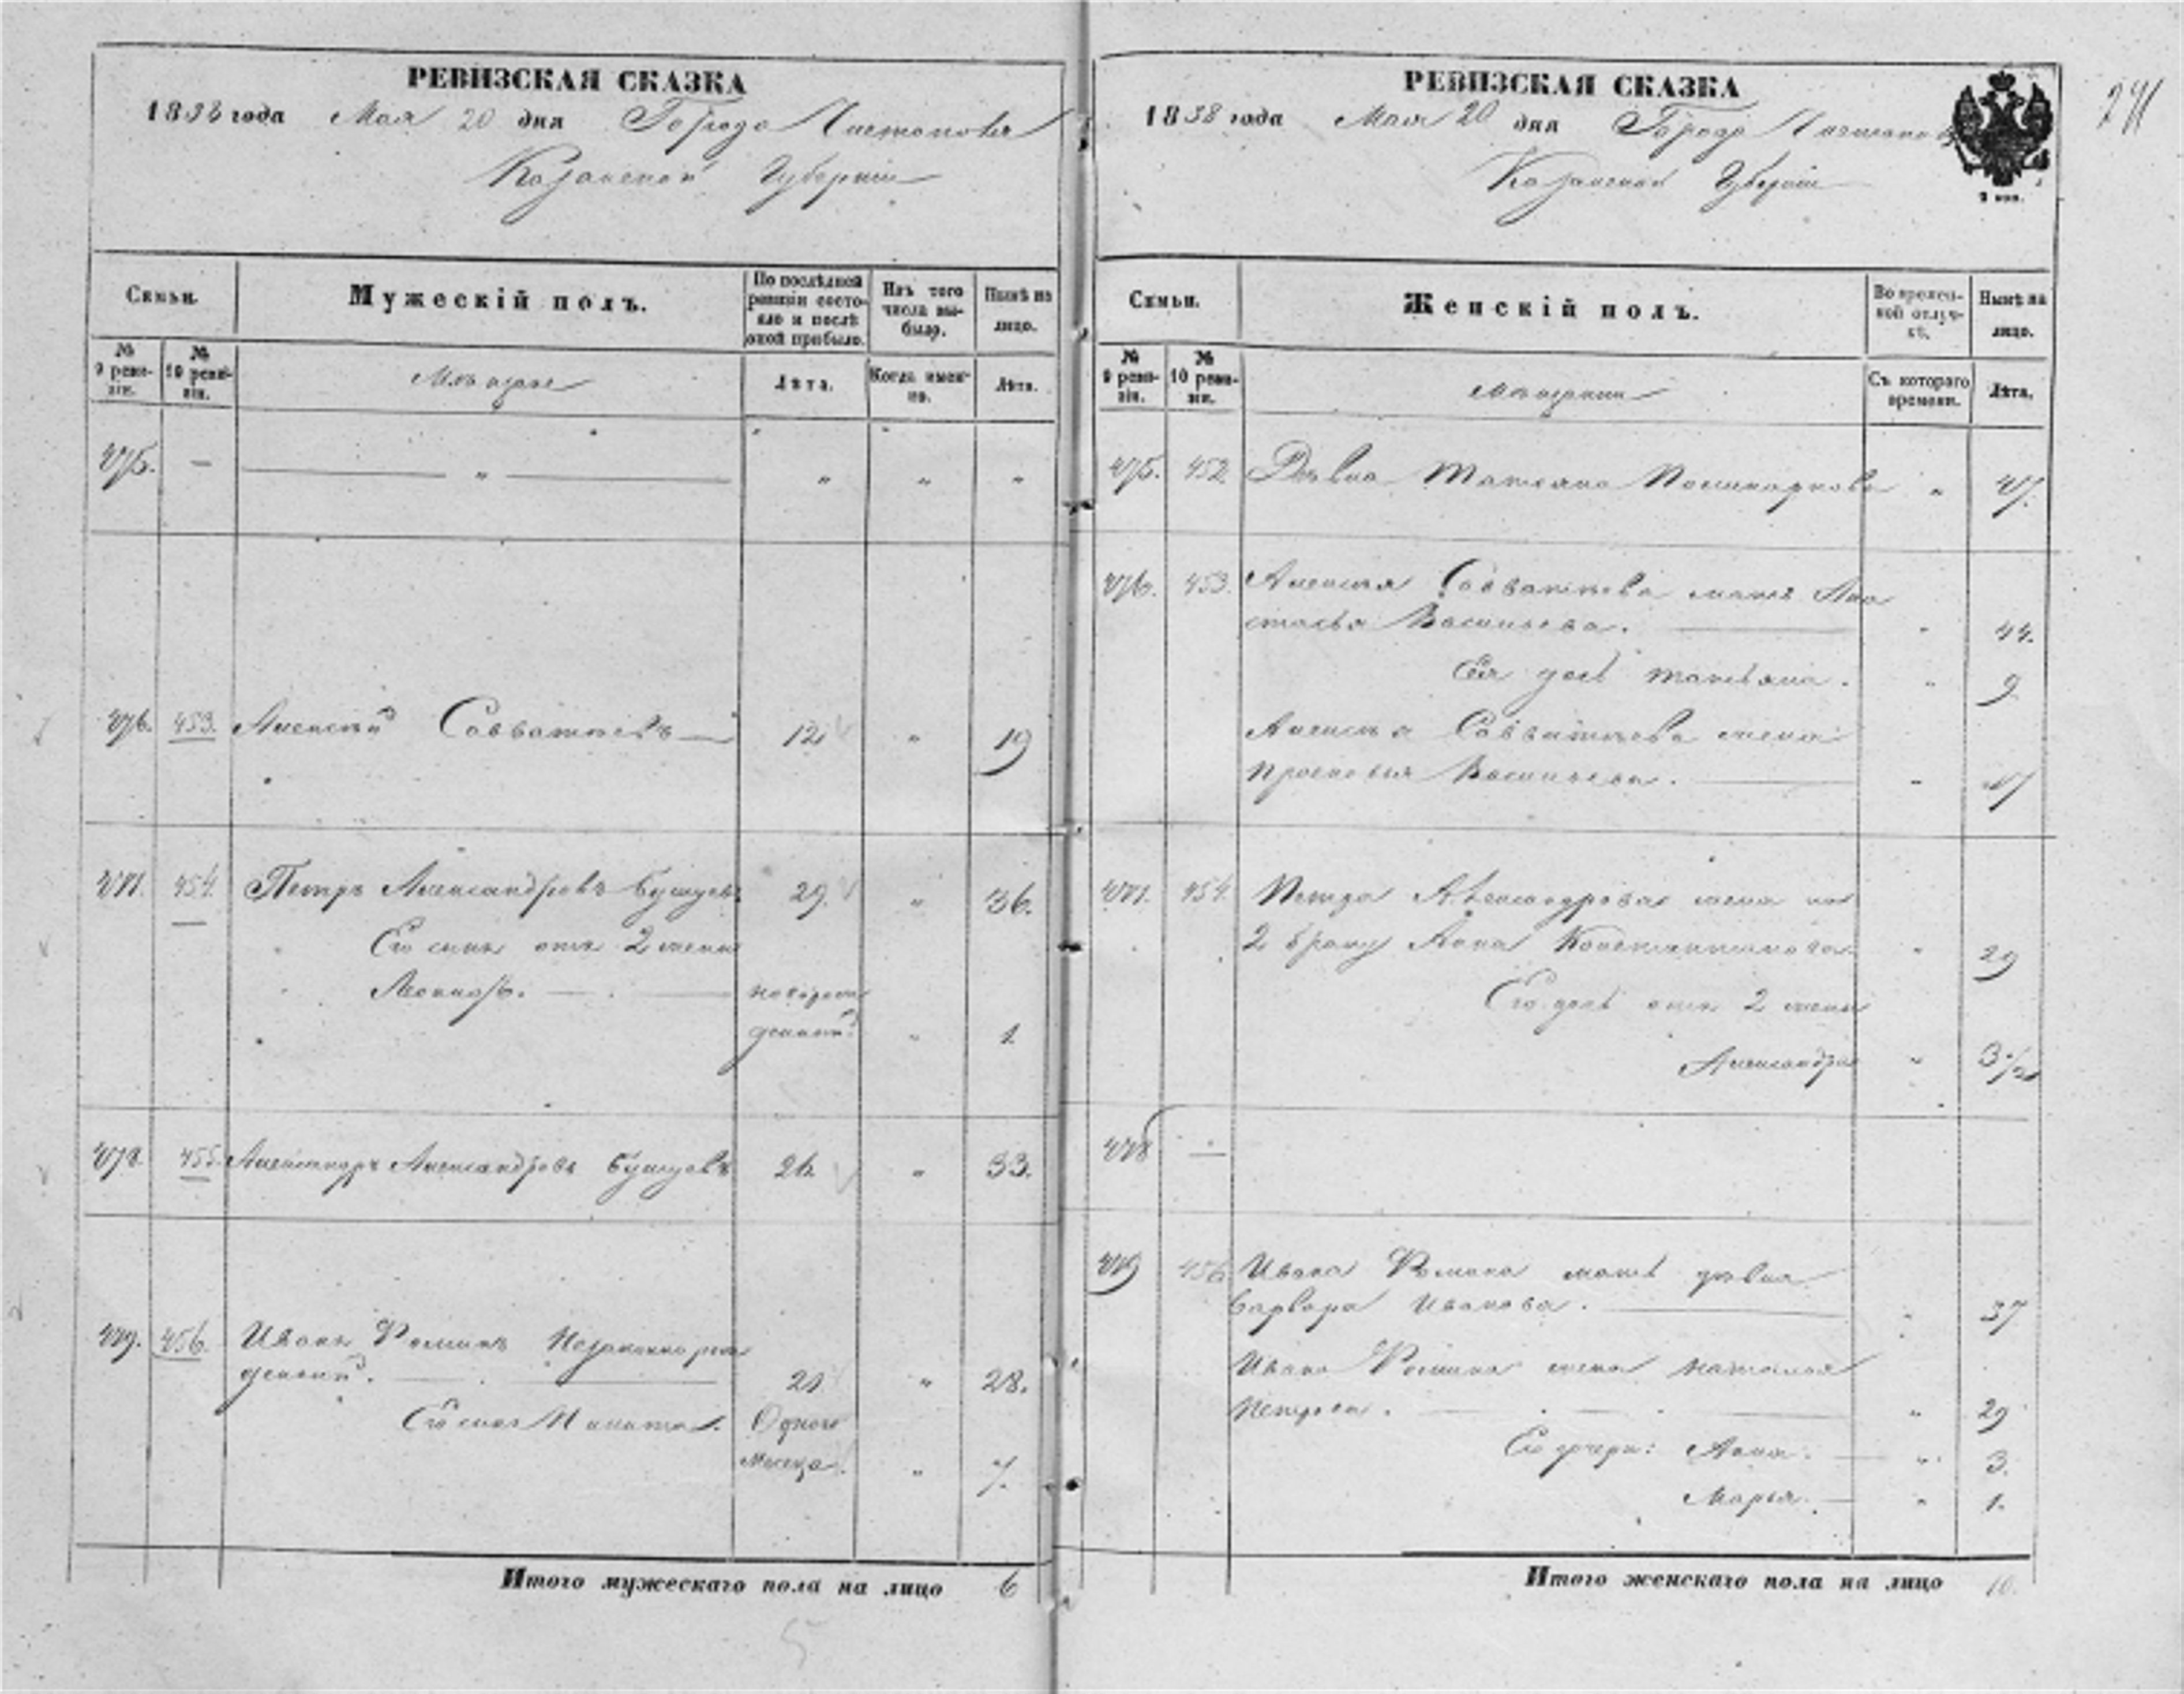 РЕВИЗСКАЯ СКАЗКА
1858 года Мая 20 дня Города Чистополя
Казанской Губернии
Семьи.
Мужескій полъ.
По послѣдней ревизіи состояло и послѣ оной прибыло.
Изъ того числа выбыло.
Нынѣ на лицо.
№ 9 ревизіи.
№ 10 ревизіи.
Мѣщане
Лѣта.
Когда именно.
Лѣта.
475. — — " — " " "
476. 453. Алексѣй Савватѣевъ — 12 " 19
477. 454. Петръ Александровъ Бушуевъ 29. " 36.
Его сынъ отъ 2 жены
новорож
денный " 1.
478. 455. Александръ Александровъ Бушуевъ 26. " 33.
479. 456. Иванъ Фоминъ Незаконнорож
денный. — 21 " 28.
Его сынъ Никита. Одного
месяца. " 7.
Итого мужескаго пола на лицо 6
5
РЕВИЗСКАЯ СКАЗКА
1858 года Мая 20 дня Города Чистополя
Казанской Губерніи
241
Семьи.
Женскій полъ.
Во временной отлучкѣ.
Нынѣ на лицо.
№ 9 ревизіи.
№ 10 ревизіи.
Мѣщанки
Съ котораго времени.
Лѣта.
475. 452 Дѣвка Татьяна " 47.
476. 453. Алексѣя Савватѣева мать Ана
стасья Васильева. — " 44.
Ея дочь Татьяна. " 9
Алексѣя Савватѣева жена
Просковья Васильева. — "
477. 454. Петра Александрова жена по
2 браку Анна Константинова " 29
Его дочь отъ 2 жены
Александра " 3 1/2
478 —
479 456 Ивана Фомина мать дѣвка
Варвара Иванова. — " 37
Ивана Фомина жена Наталья
Петрова. — " 29
Его дочери: Анна. — " 3.
Марья. — " 1.
Итого женскаго пола на лицо 10.